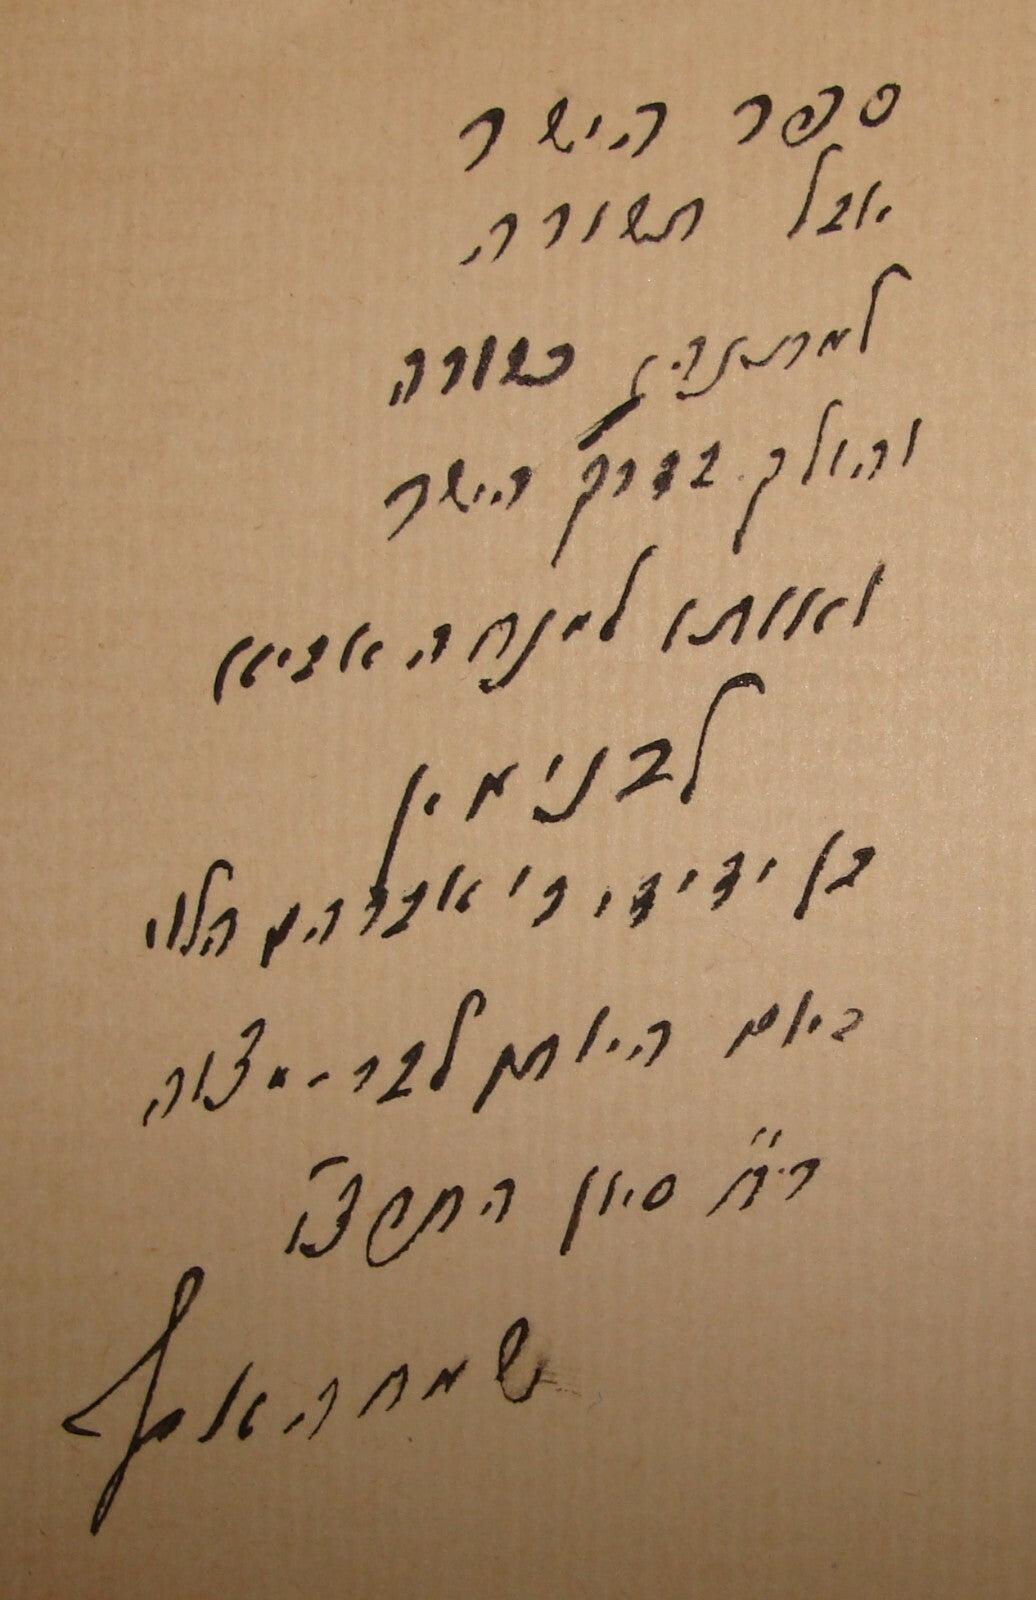 ספר הישר
אבל תשורה
למתנהג כשורה
והולך בדרך הישר
ואותו למנחה אביא
לבנימין
בן ידידי ר' אברהם הלוי
ביום היותו לבר-מצוה
ר"ח סיון התרצ"ו
שמחה אסף